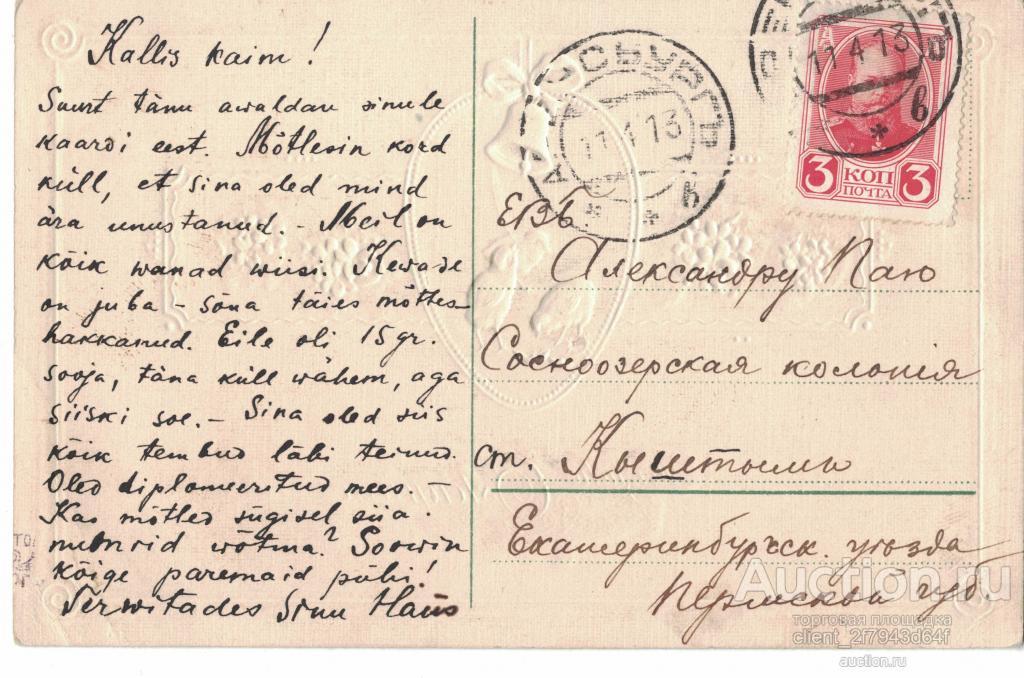 Kallis kaim!
Suurt tänu awaldan sinule
kaardi eest. Mõtlesin kord
küll, et sina oled mind
ära unustanud. - Meil on
kõik wanad wiisi. Kewade
on juba - sõna täies mõttes -
hakkanud. Eile oli 15 gr.
sooja, täna küll wähem, aga
siiski soe. - Sina oled siis
kõik tembud läbi teinud.
Oled diplomeeritud mees. -
Kas mõtled sügisel siia
wõtma? Soowin
kõige paremaid pühi!
Terwitades Sinu Hans
11 4 13
11 4 13
3 КОП 3
ПОЧТА
ЕВБ
Александру Паю
Сосноозерская колонія
ст. Кыштымъ
Екатеринбургск. уѣзда
Пермской губ.
Auction.ru
торговая площадка
client_2f7943d64f
auction.ru